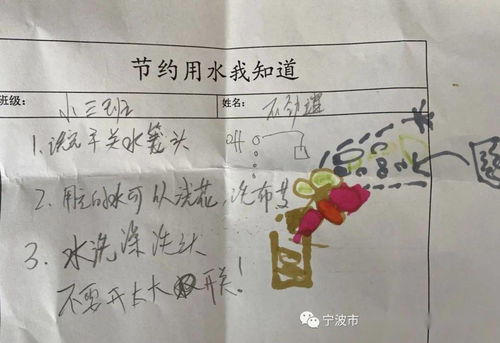 节约用水我知道
班级： 小三班 姓名：
1. 洗完手关水笼头 off
2. 用过的水可以浇花，洗布等
3. 水洗澡洗头
不要开太大 开关！
宁波市